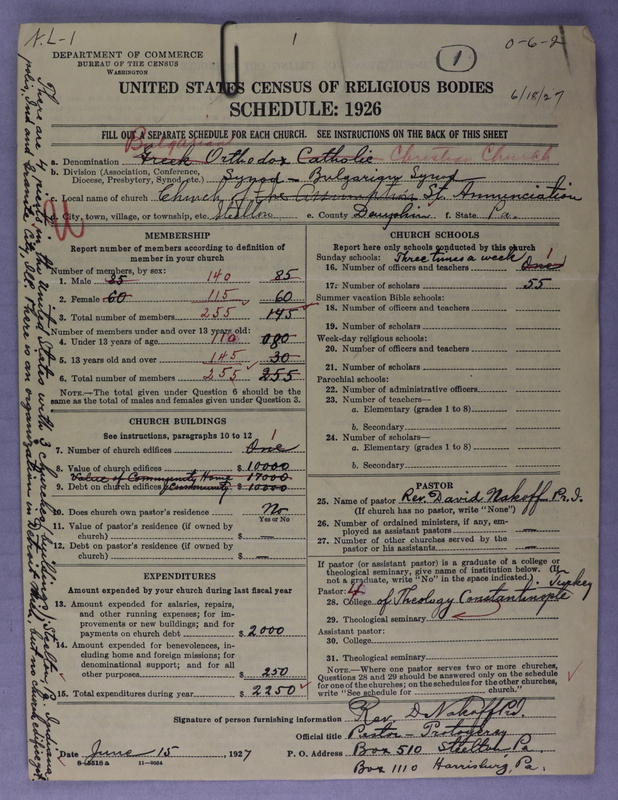 N.L-1
1
1
0-6-2
DEPARTMENT OF COMMERCE
BUREAU OF THE CENSUS
WASHINGTON
UNITED STATES CENSUS OF RELIGIOUS BODIES
6/18/27
SCHEDULE: 1926
FILL OUT A SEPARATE SCHEDULE FOR EACH CHURCH. SEE INSTRUCTIONS ON THE BACK OF THIS SHEET
Bulgarian
a. Denomination Greek Orthodox Catholic Christian Church
b. Division (Association, Conference, Diocese, Presbytery, Synod, etc.) Synod - Bulgarian Synod
c. Local name of church Church of the Assumption St. Annunciation
d. City, town, village, or township, etc. Steelton e. County Dauphin f. State Pa.
MEMBERSHIP
Report number of members according to definition of member in your church
Number of members, by sex:
1. Male 85 140 85
2. Female 60 115 60
3. Total number of members 255 145
Number of members under and over 13 years old:
4. Under 13 years of age 110 080
5. 13 years old and over 145 30
6. Total number of members 255 255
NOTE.—The total given under Question 6 should be the same as the total of males and females given under Question 3.
CHURCH BUILDINGS
See instructions, paragraphs 10 to 12
7. Number of church edifices One 1
8. Value of church edifices $ 10000
Value of Community Home 17000
9. Debt on church edifices & Community $ 10000
10. Does church own pastor's residence? No
Yes or No
11. Value of pastor's residence (if owned by church) $ —
12. Debt on pastor's residence (if owned by church) $ —
EXPENDITURES
Amount expended by your church during last fiscal year
13. Amount expended for salaries, repairs, and other running expenses; for improvements or new buildings; and for payments on church debt $ 2000
14. Amount expended for benevolences, including home and foreign missions; for denominational support; and for all other purposes 250
15. Total expenditures during year $ 2250
CHURCH SCHOOLS
Report here only schools conducted by this church
Sunday schools: Three times a week
16. Number of officers and teachers One 1
17. Number of scholars 55
Summer vacation Bible schools:
18. Number of officers and teachers
19. Number of scholars
Week-day religious schools:
20. Number of officers and teachers
21. Number of scholars
Parochial schools:
22. Number of administrative officers
23. Number of teachers—
a. Elementary (grades 1 to 8)
b. Secondary
24. Number of scholars—
a. Elementary (grades 1 to 8)
b. Secondary
PASTOR
25. Name of pastor Rev. David Nakoff Pr. I.
(If church has no pastor, write "None")
26. Number of ordained ministers, if any, employed as assistant pastors —
27. Number of other churches served by the pastor or his assistants —
If pastor (or assistant pastor) is a graduate of a college or theological seminary, give name of institution below. (If not a graduate, write "No" in the space indicated.)
Pastor:
28. College of Theology Constantinople, Turkey
29. Theological seminary
Assistant pastor:
30. College
31. Theological seminary
NOTE.—Where one pastor serves two or more churches, Questions 28 and 29 should be answered only on the schedule for one of the churches; on the schedules for the other churches, write "See schedule for church."
Signature of person furnishing information Rev. D Nakoff Pr.I.
Official title Pastor -
Date June 15, 1927 P. O. Address Box 510 Steelton Pa.
8-5518a 11-9054
Box 1110 Harrisburg, Pa.
There are 4 priests in the United States with 3 churches buildings, Steelton, Pa. Indianapolis, Ind and Granite City, Ill. There is an organization in Detroit Mich. but no church